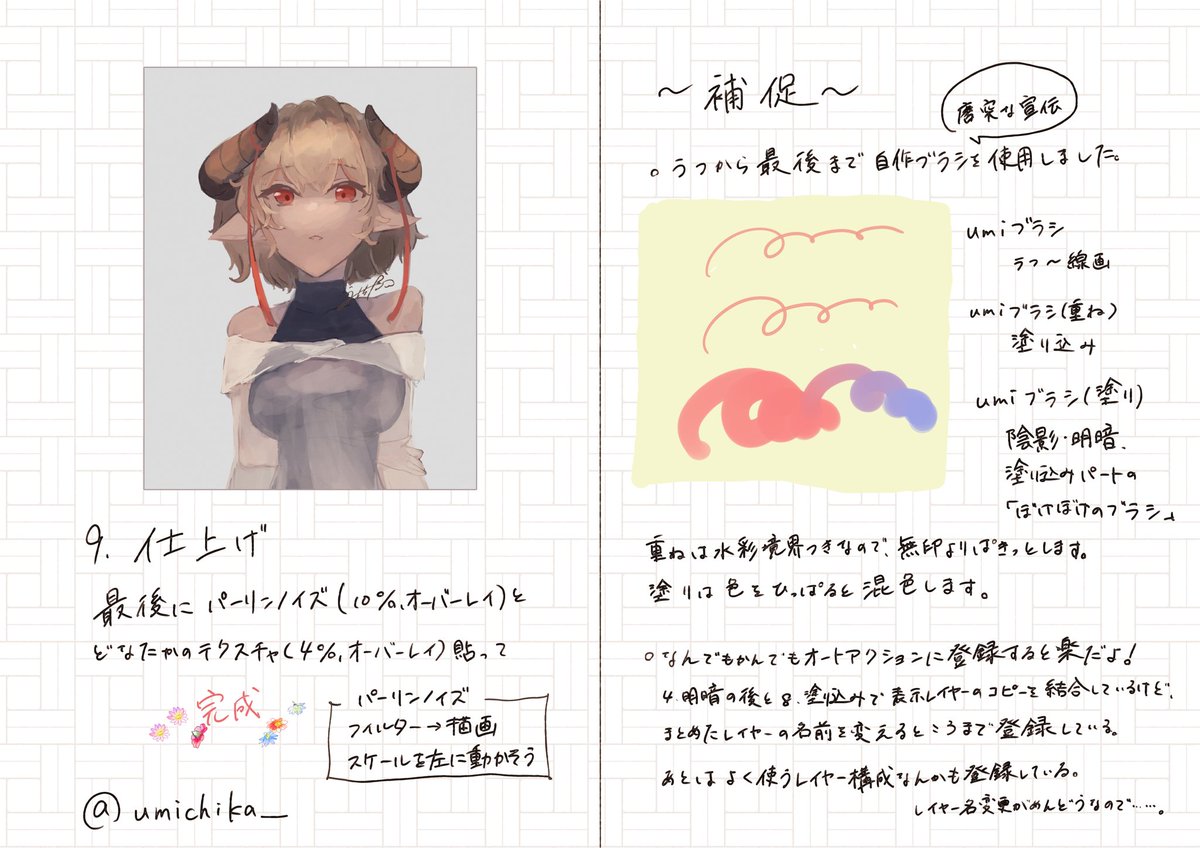 9. 仕上げ
最後に パーリンノイズ(10%,オーバーレイ)と
どなたかのテクスチャ(4%,オーバーレイ)貼って
完成
パーリンノイズ
フィルター→描画
スケールを左に動かそう
@umichika_
～補促～
唐突な宣伝
。ラフから最後まで自作ブラシを使用しました。
umiブラシ
ラフ～線画
umiブラシ(重ね)
塗り込み
umiブラシ(塗り)
陰影・明暗、
塗り込みパートの
「ぼけぼけのブラシ」
重ねは水彩境界つきなので、無印よりぱきっとします。
塗りは色をひっぱると混色します。
○なんでもかんでもオートアクションに登録すると楽だよ!
4.明暗の後と8.塗り込みで表示レイヤーのコピーを結合しているけど、
まとめたレイヤーの名前を変えるところまで登録している。
あとはよく使うレイヤー構成なんかも登録している。
レイヤー名変更がめんどうなので……。